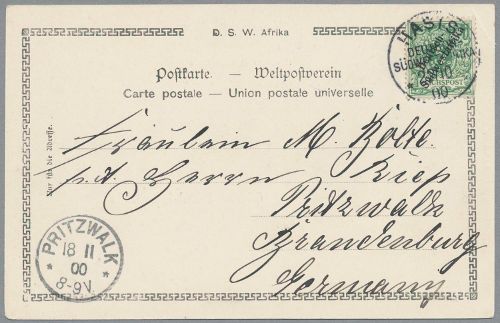 D. S. W. Afrika
Postkarte. — Weltpostverein
Carte postale — Union postale universelle
Nur für die Adresse.
Fräulein M. Bolte
p. Ad. Herrn Kiep
Pritzwalk
Brandenburg
Germany
PRITZWALK
18 11
00
8-9V.
HASIS
DEUTSCH
SÜDWESTAFRIKA
10
00
REICHSPOST